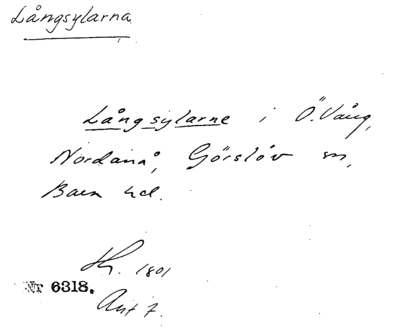 Långsylarna
Långsylarne i Ö. Vång,
Nordanå, Görslöv sn,
Bara hd.
1801
Nr 6318.
Akt 7.